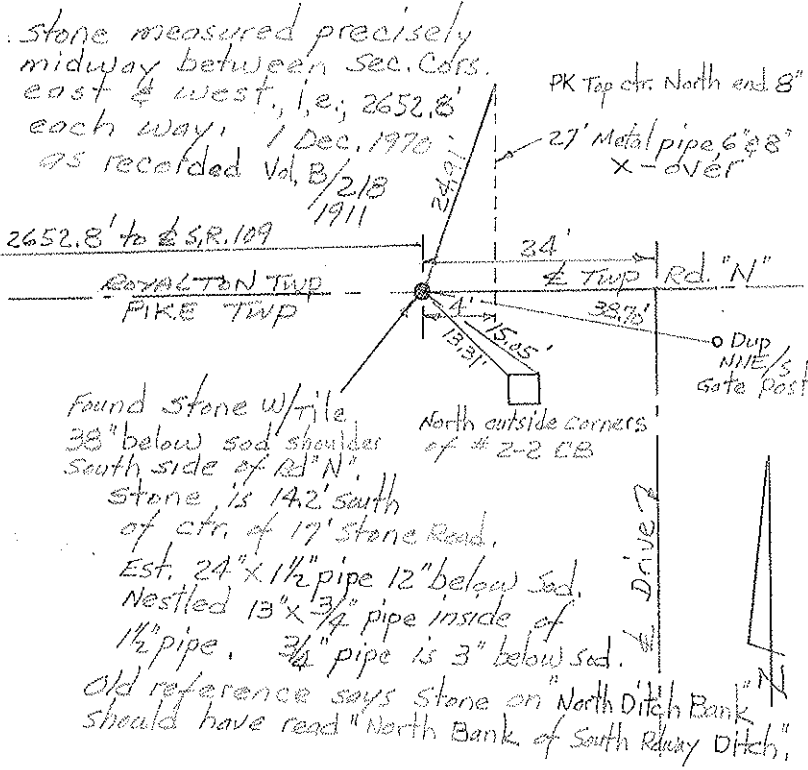 stone measured precisely
midway between Sec. Cors.
east & west, i.e., 2652.8'
each way. 1 Dec. 1970
as recorded Vol. B/218
1911
PK Top ctr. North end 8"
27' Metal pipe 6" & 8"
X-over
24.91
2652.8' to ℄ S.R. 109
34'
ROYALTON TWP
PIKE TWP
℄ Twp Rd. "N"
4'
15.05'
13.31'
38.70'
Dup
NNE/S
Gate Post
Found Stone W/Tile
38" below sod shoulder
South side of Rd "N".
Stone is 14.2' south
of ctr. of 17' Stone Road.
North outside corners
of # 2-2 CB
Est. 24" x 1½" pipe 12" below Sod.
Nestled 13" x ¾" pipe inside of
1½" pipe. ¾" pipe is 3" below sod.
℄ Drive
Old reference says Stone on "North Ditch Bank"
should have read "North Bank of South Rdway Ditch".